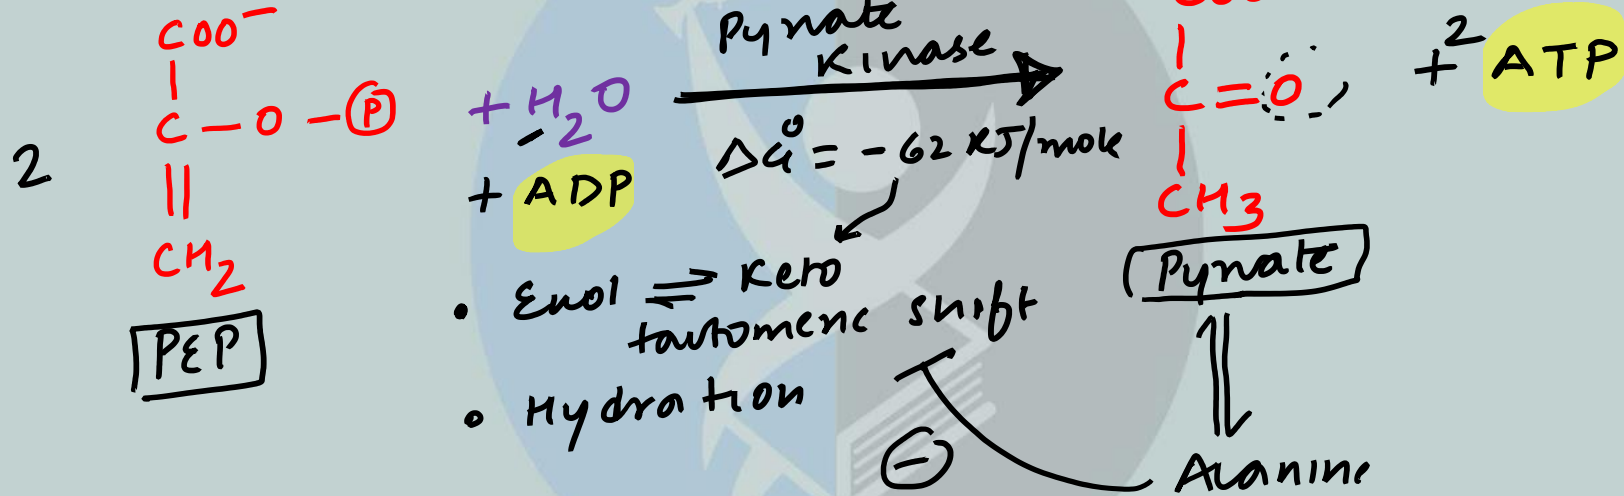 COO⁻
|
C — O — Ⓟ
||
CH₂
2
PEP
+ H₂O
+ ADP
Pyruvate
Kinase
ΔG° = - 62 KJ/mole
• Enol ⇌ Keto
tautomeric shift
• Hydration
|
C = O
|
CH₃
Pyruvate
+ 2 ATP
⊖
Alanine